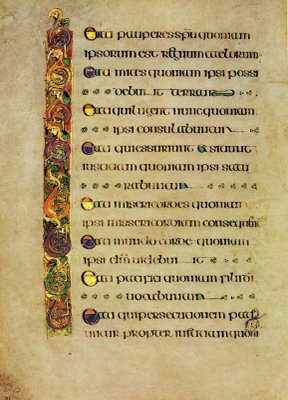 Eati pauperes spu quoniam
ipsorum est regnum caelorum
Eati mites quoniam ipsi possi
debunt terram
Eati qui lugent nunc quoniam
ipsi consulabuntur
Eati qui essuriunt & sitiunt
iustitiam quoniam ipsi satu
rabuntur
Eati misericordes quoniam
ipsi misericordiam consequentur
Eati mundo corde quoniam
ipsi dm videbunt
Eati pacifici quoniam filii di
vocabuntur
Eati qui persecutionem pati
untur propter iustitiam quoni